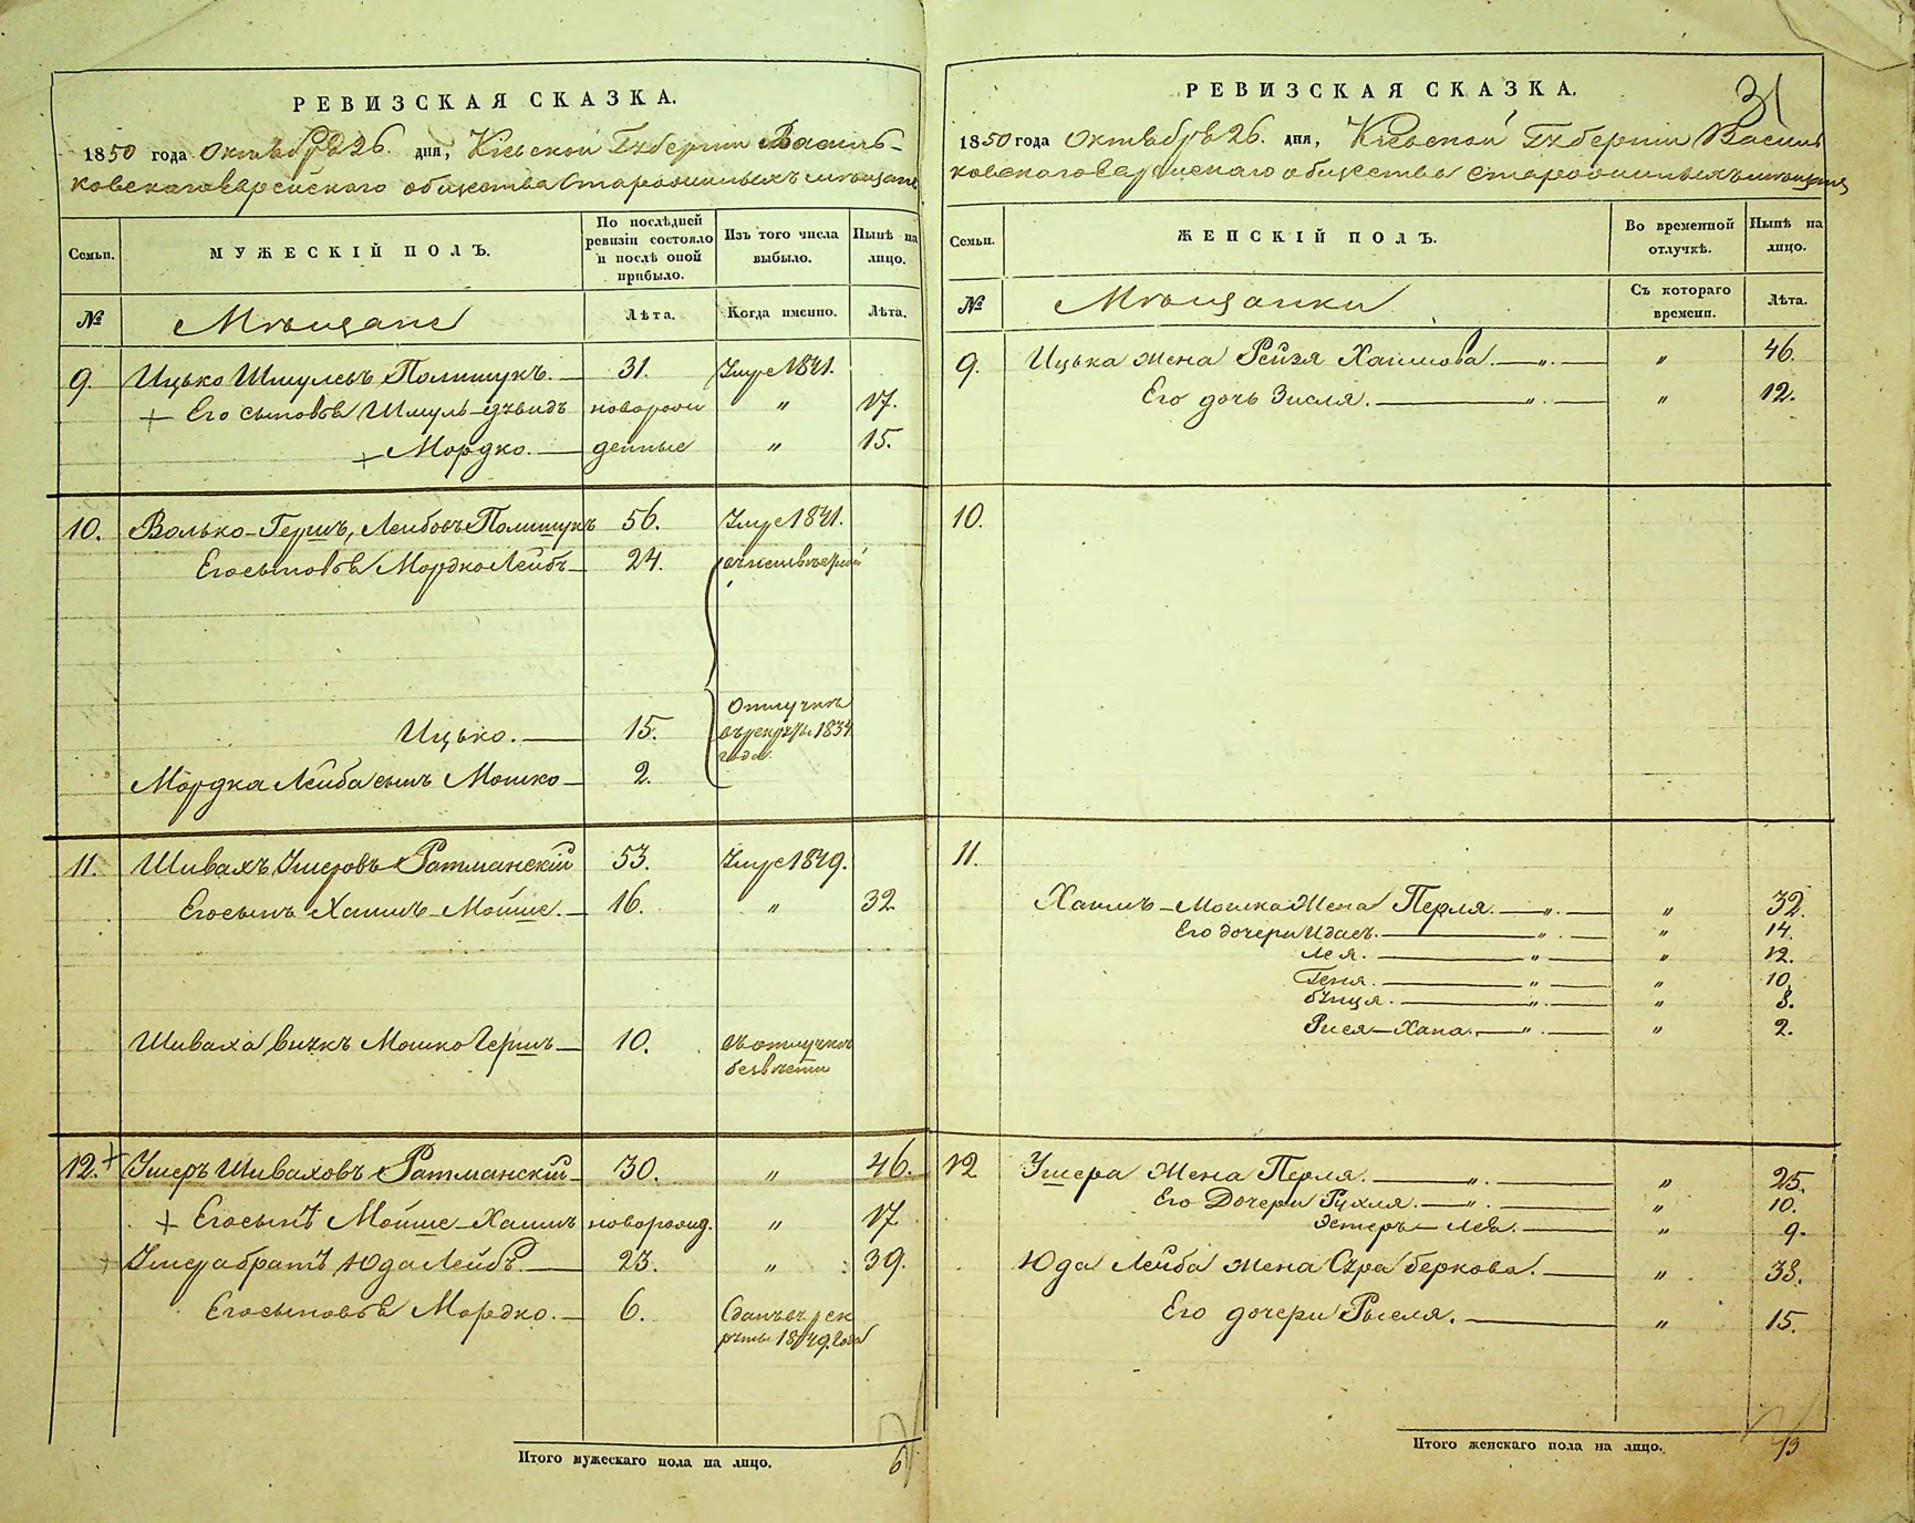 РЕВИЗСКАЯ СКАЗКА.
1850 года Октября 26. дня, Кіевской Губерніи Василь-
ковскаго Еврейскаго общества Старооминыхъ мещанъ
Семьи. МУЖЕСКІЙ ПОЛЪ. По послѣдней ревизіи состояло и послѣ оной прибыло. Изъ того числа выбыло. Нынѣ на лицо.
№ Мѣщане Лѣта. Когда именно. Лѣта.
9. Ицько Шмулевъ Полищукъ. 31. Умре 1841.
+ Его сыновья Шмуль-Дувидъ новорож „ 17.
+ Мордко. денные „ 15.
10. Волько-Гершъ, Лейбовъ Полищукъ 56. Умре 1841.
Его сыновья Мордко Лейбъ 24.
Ицько. 15. Отлучкѣ
съ 1834
года.
Мордка Лейба сынъ Мошко 2.
11. Шивахъ Умеровъ Ратманскій 53. Умре 1849.
Его сынъ Хаимъ-Мойше. 16. „ 32
Шиваха внукъ Мошко Гершъ 10. въ отлучкѣ
безвѣстн
12. + Ушеръ Шиваховъ Ратманскій 30. „ 46.
+ Его сынъ Мойше-Хаимъ новорожд. „ 17
+ Ушера братъ Юда Лейбъ. 23. „ 39.
Его сыновья Мордко. 6. Сданъ въ рек
руты 1849. года
Итого мужескаго пола на лицо. 6
31
РЕВИЗСКАЯ СКАЗКА.
1850 года Октября 26. дня, Кіевской Губерніи Василь
ковскаго Еврейскаго общества мещанъ
Семьи. ЖЕНСКІЙ ПОЛЪ. Во временной отлучкѣ. Нынѣ на лицо.
№ Мѣщанки Съ котораго времени. Лѣта.
9. Ицька жена Рейзя Хаимова. „ „ 46.
Его дочь Зисля. „ „ 12.
10.
11.
Хаимъ-Мошка Жена Перля. „ „ 32.
Его дочери Идасъ. „ „ 14.
Лея. „ „ 12.
Геня. „ „ 10.
Бунця. „ „ 8.
Рися-Хана. „ „ 2.
12 Ушера Жена Перля. „ „ 25.
Его Дочери Рухля. „ „ 10.
Эстеръ-Лея. „ 9.
Юда Лейба жена Сура Беркова. „ 38.
Его дочери Рыселя. „ 15.
Итого женскаго пола на лицо. 13